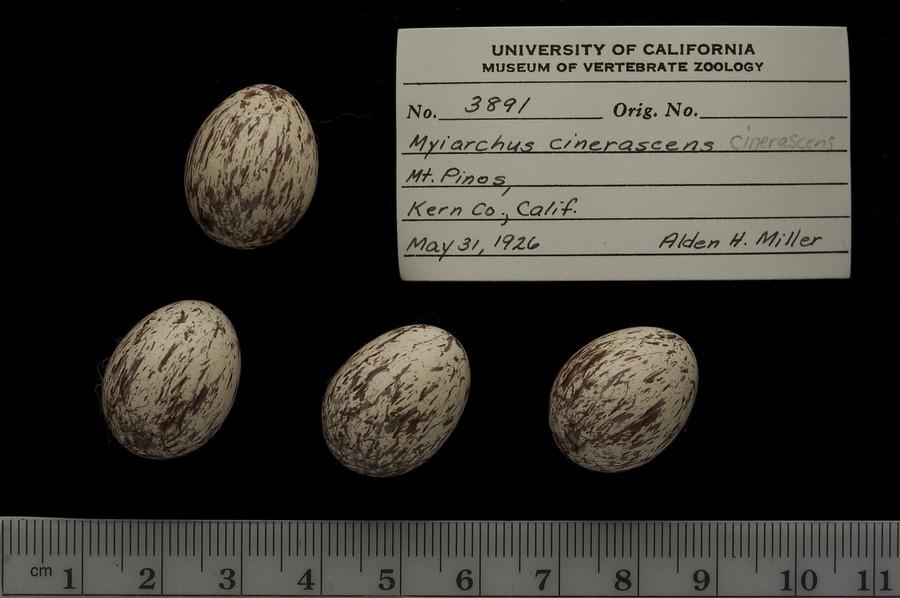 UNIVERSITY OF CALIFORNIA
MUSEUM OF VERTEBRATE ZOOLOGY
No. 3891 Orig. No.
Myiarchus cinerascens cinerascens
Mt. Pinos,
Kern Co., Calif.
May 31, 1926 Alden H. Miller
cm 1 2 3 4 5 6 7 8 9 10 11